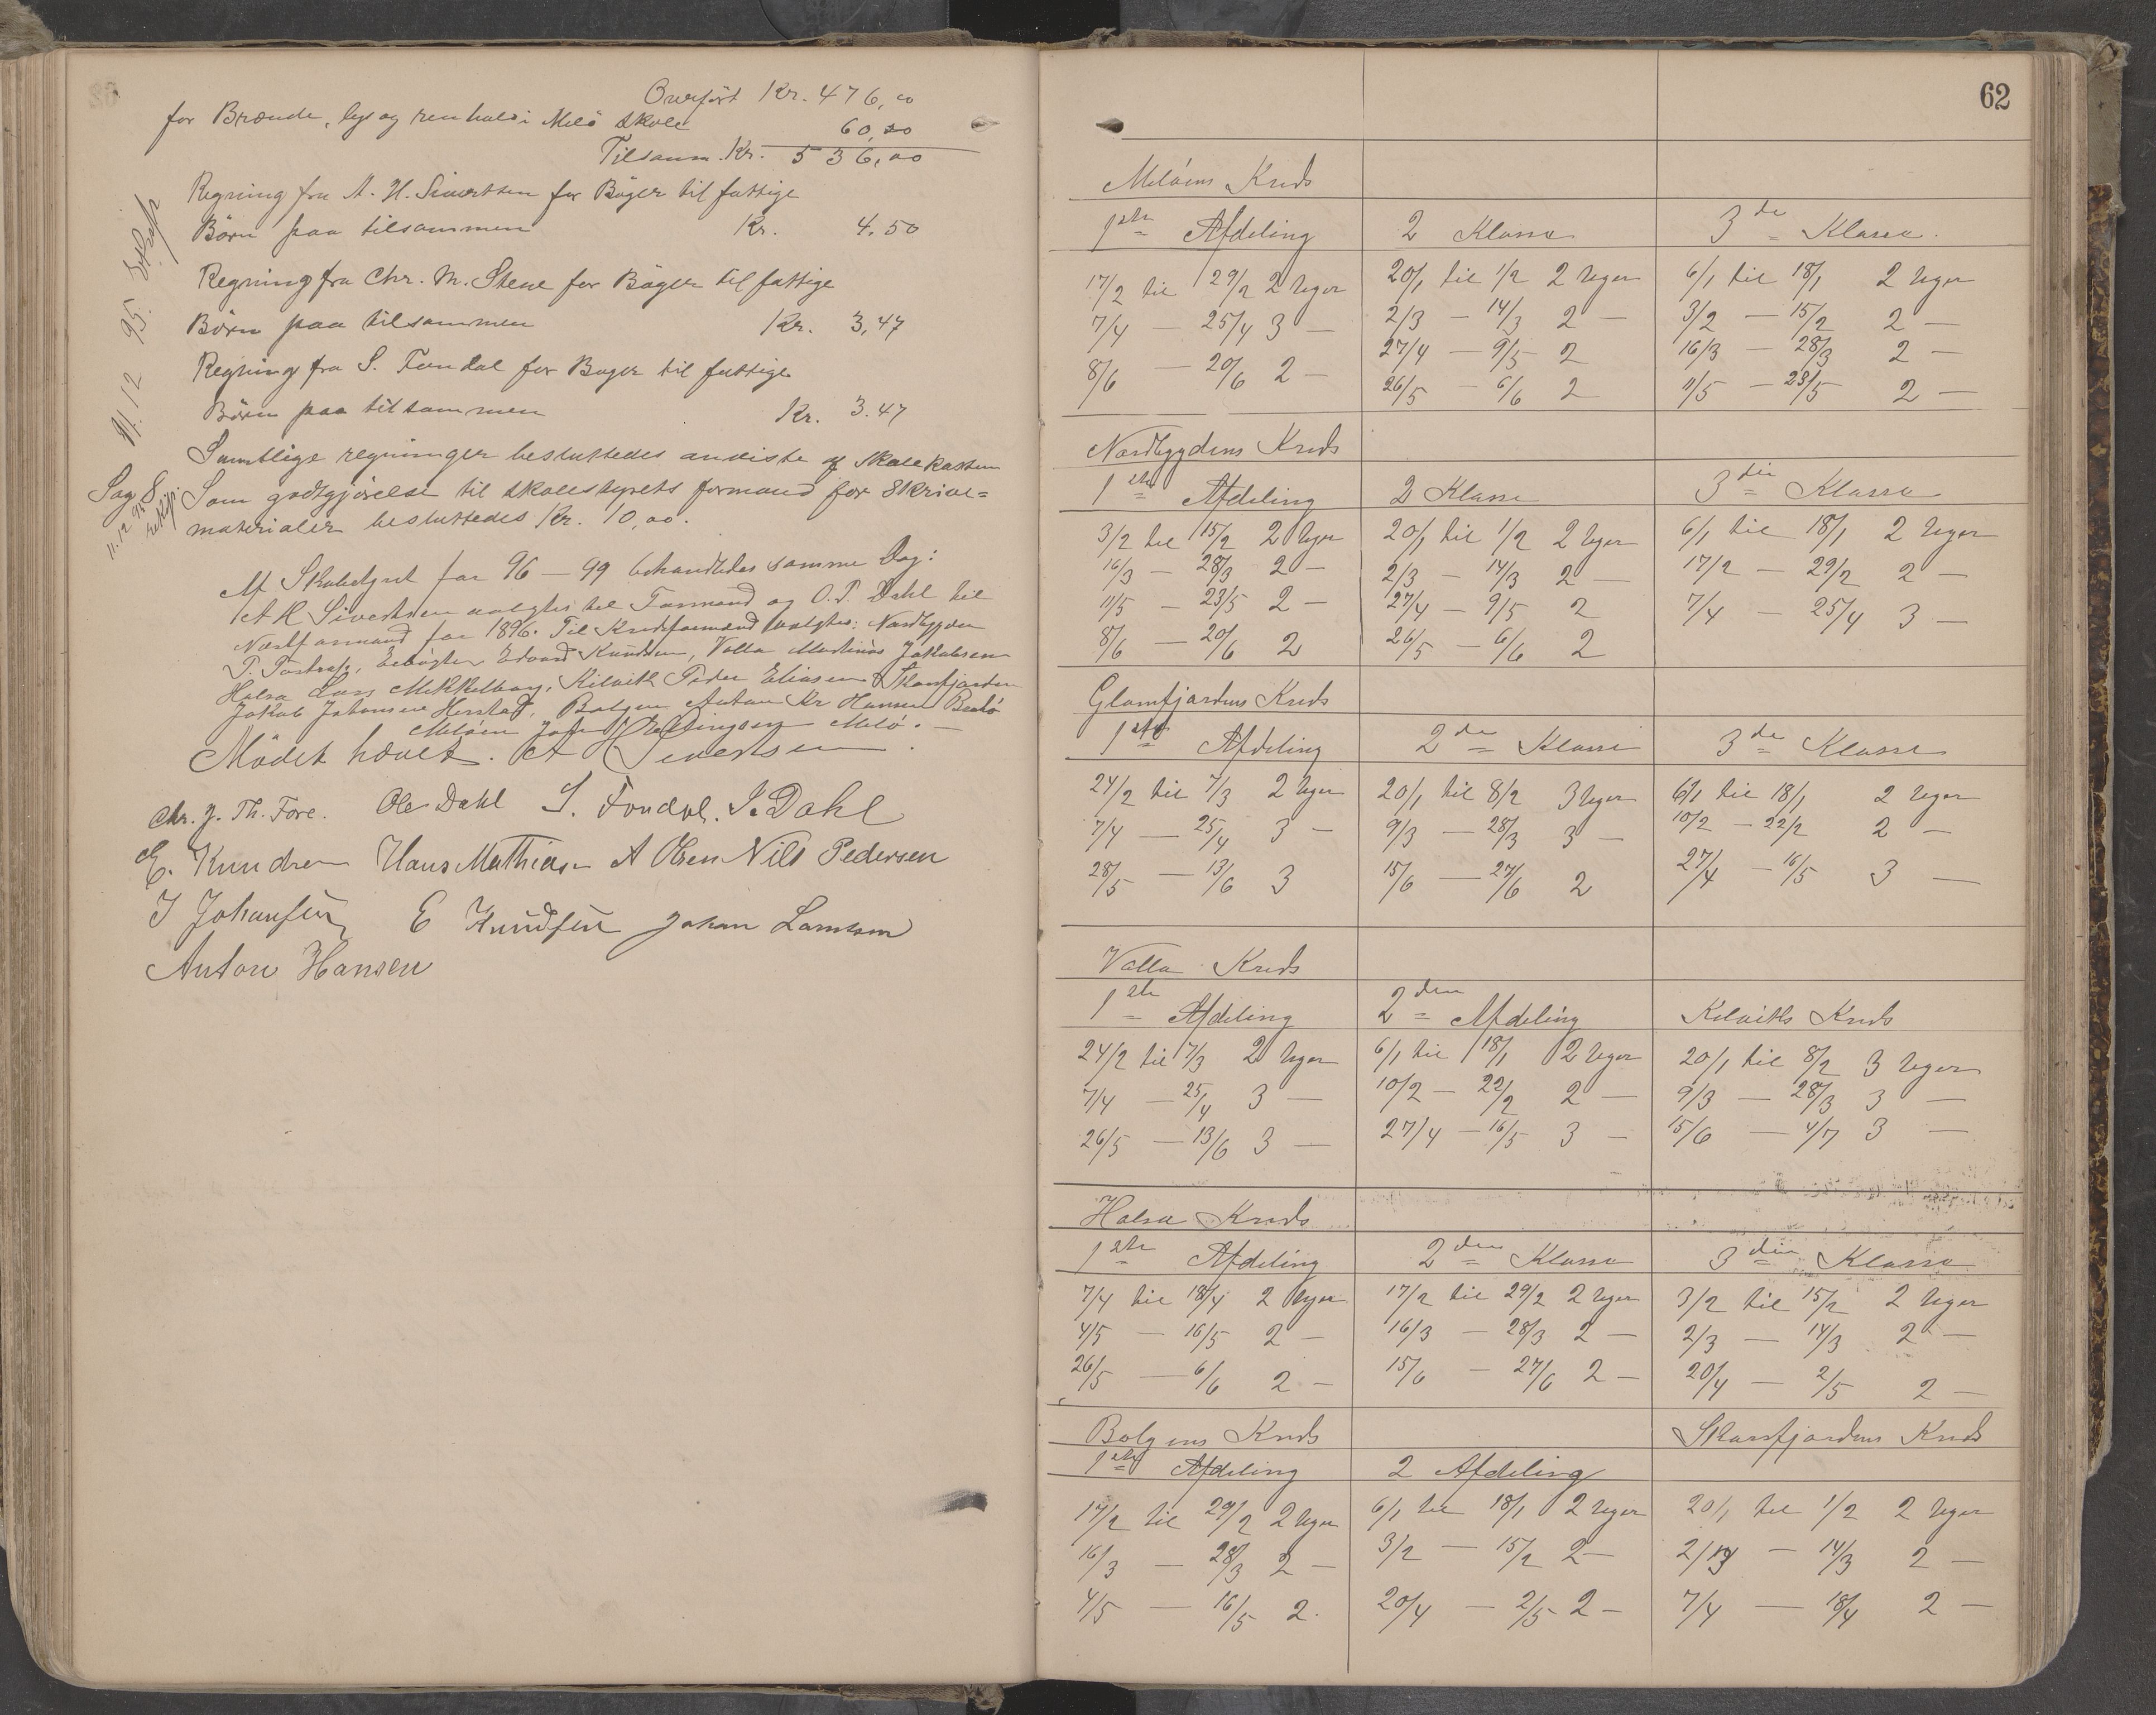 Overført Kr. 476,00
for Brænde, lys og renhold i Melø Skole 60,00
Tilsamm. Kr. 536,00
Regning fra A. H. Sivertsen for Bøger til fattige
Børn paa tilsammen Kr. 4.50
Regning fra Chr. M. Stene for Bøger til fattige
Børn paa tilsammen Kr. 3,47
Regning fra S. Fondal for Bøger til fattige
Børn paa tilsammen Kr. 3.47
11. 12 95.
Samtlige regninger besluttedes anviste af Skolekassen
Sag 8. Som godtgjørelse til Skolestyrets formand for Skrive=
materialer besluttedes Kr. 10,00.
11. 12 95
Af Skolestyret for 96 — 99 behandledes samme Dag:
A H Sivertsen valgtes til Formand og O. P. Dahl til
Næstformand for 1896. Til Kredsformænd valgtes: Nordbygden
P. Edvard Knudsen, Valla Martinus Jakobsen
Halsa Lars Mikkelborg, Kilvik Peder Eliasen Skarsfjorden
Jakob Johansen Herstad, Bolgen Anton Kr Hansen
Meløen Ellingsen Melø. —
Mødet hævet. A Sivertsen
Chr. J. Th. Fore. Ole Dahl S. Fondal. I. Dahl
E. Knudsen Hans Mathiasen A Olsen Nils Pedersen
I Johansen E Knudsen Johan Larntsen
Anton Hansen
62
Meløens Kreds
1ste Afdeling 2 Klasse 3die Klasse.
17/2 til 29/2 2 Uger 20/1 til 1/2 2 Uger 6/1 til 18/1 2 Uger
7/4 — 25/4 3 — 2/3 — 14/3 2 — 3/2 — 15/2 2 —
8/6 — 20/6 2 — 27/4 — 9/5 2 16/3 — 28/3 2 —
26/5 — 6/6 2 11/5 — 23/5 2 —
Nordbygdens Kreds
1ste Afdeling 2 Klasse 3die Klasse
3/2 til 15/2 2 Uger 20/1 til 1/2 2 Uger 6/1 til 18/1 2 Uger
16/3 — 28/3 2 — 2/3 — 14/3 2 — 17/2 — 29/2 2 —
11/5 — 23/5 2 — 27/4 — 9/5 2 7/4 — 25/4 3 —
8/6 — 20/6 2 26/5 — 6/6 2
Glomfjordens Kreds
1ste Afdeling 2den Klasse 3die Klasse
24/2 til 7/3 2 Uger 20/1 til 8/2 3 Uger 6/1 til 18/1 2 Uger
7/4 — 25/4 3 — 9/3 — 28/3 3 — 10/2 — 22/2 2 —
28/5 — 13/6 3 15/6 — 27/6 2 27/4 — 16/5 3 —
Valla Kreds
1ste Afdeling 2den Afdeling Kilviks Kreds
24/2 til 7/3 2 Uger 6/1 til 18/1 2 Uger 20/1 til 8/2 3 Uger
7/4 — 25/4 3 — 10/2 — 22/2 2 — 9/3 — 28/3 3 —
26/5 — 13/6 3 — 27/4 — 16/5 3 — 15/6 — 4/7 3 —
Halsa Kreds
1ste Afdeling 2den Klasse 3die Klasse
7/4 til 18/4 2 Uger 17/2 til 29/2 2 Uger 3/2 til 15/2 2 Uger
4/5 — 16/5 2 — 16/3 — 28/3 2 — 2/3 — 14/3 2 —
26/5 — 6/6 2 — 15/6 — 27/6 2 — 20/4 — 2/5 2 —
Bolgens Kreds Skarsfjordens Kreds
1ste Afdeling 2 Afdeling
17/2 til 29/2 2 Uger 6/1 til 18/1 2 Uger 20/1 til 1/2 2 Uger
16/3 — 28/3 2 — 3/2 — 15/2 2 — 2/3 — 14/3 2 —
4/5 — 16/5 2. 20/4 — 2/5 2 — 7/4 — 18/4 2 —